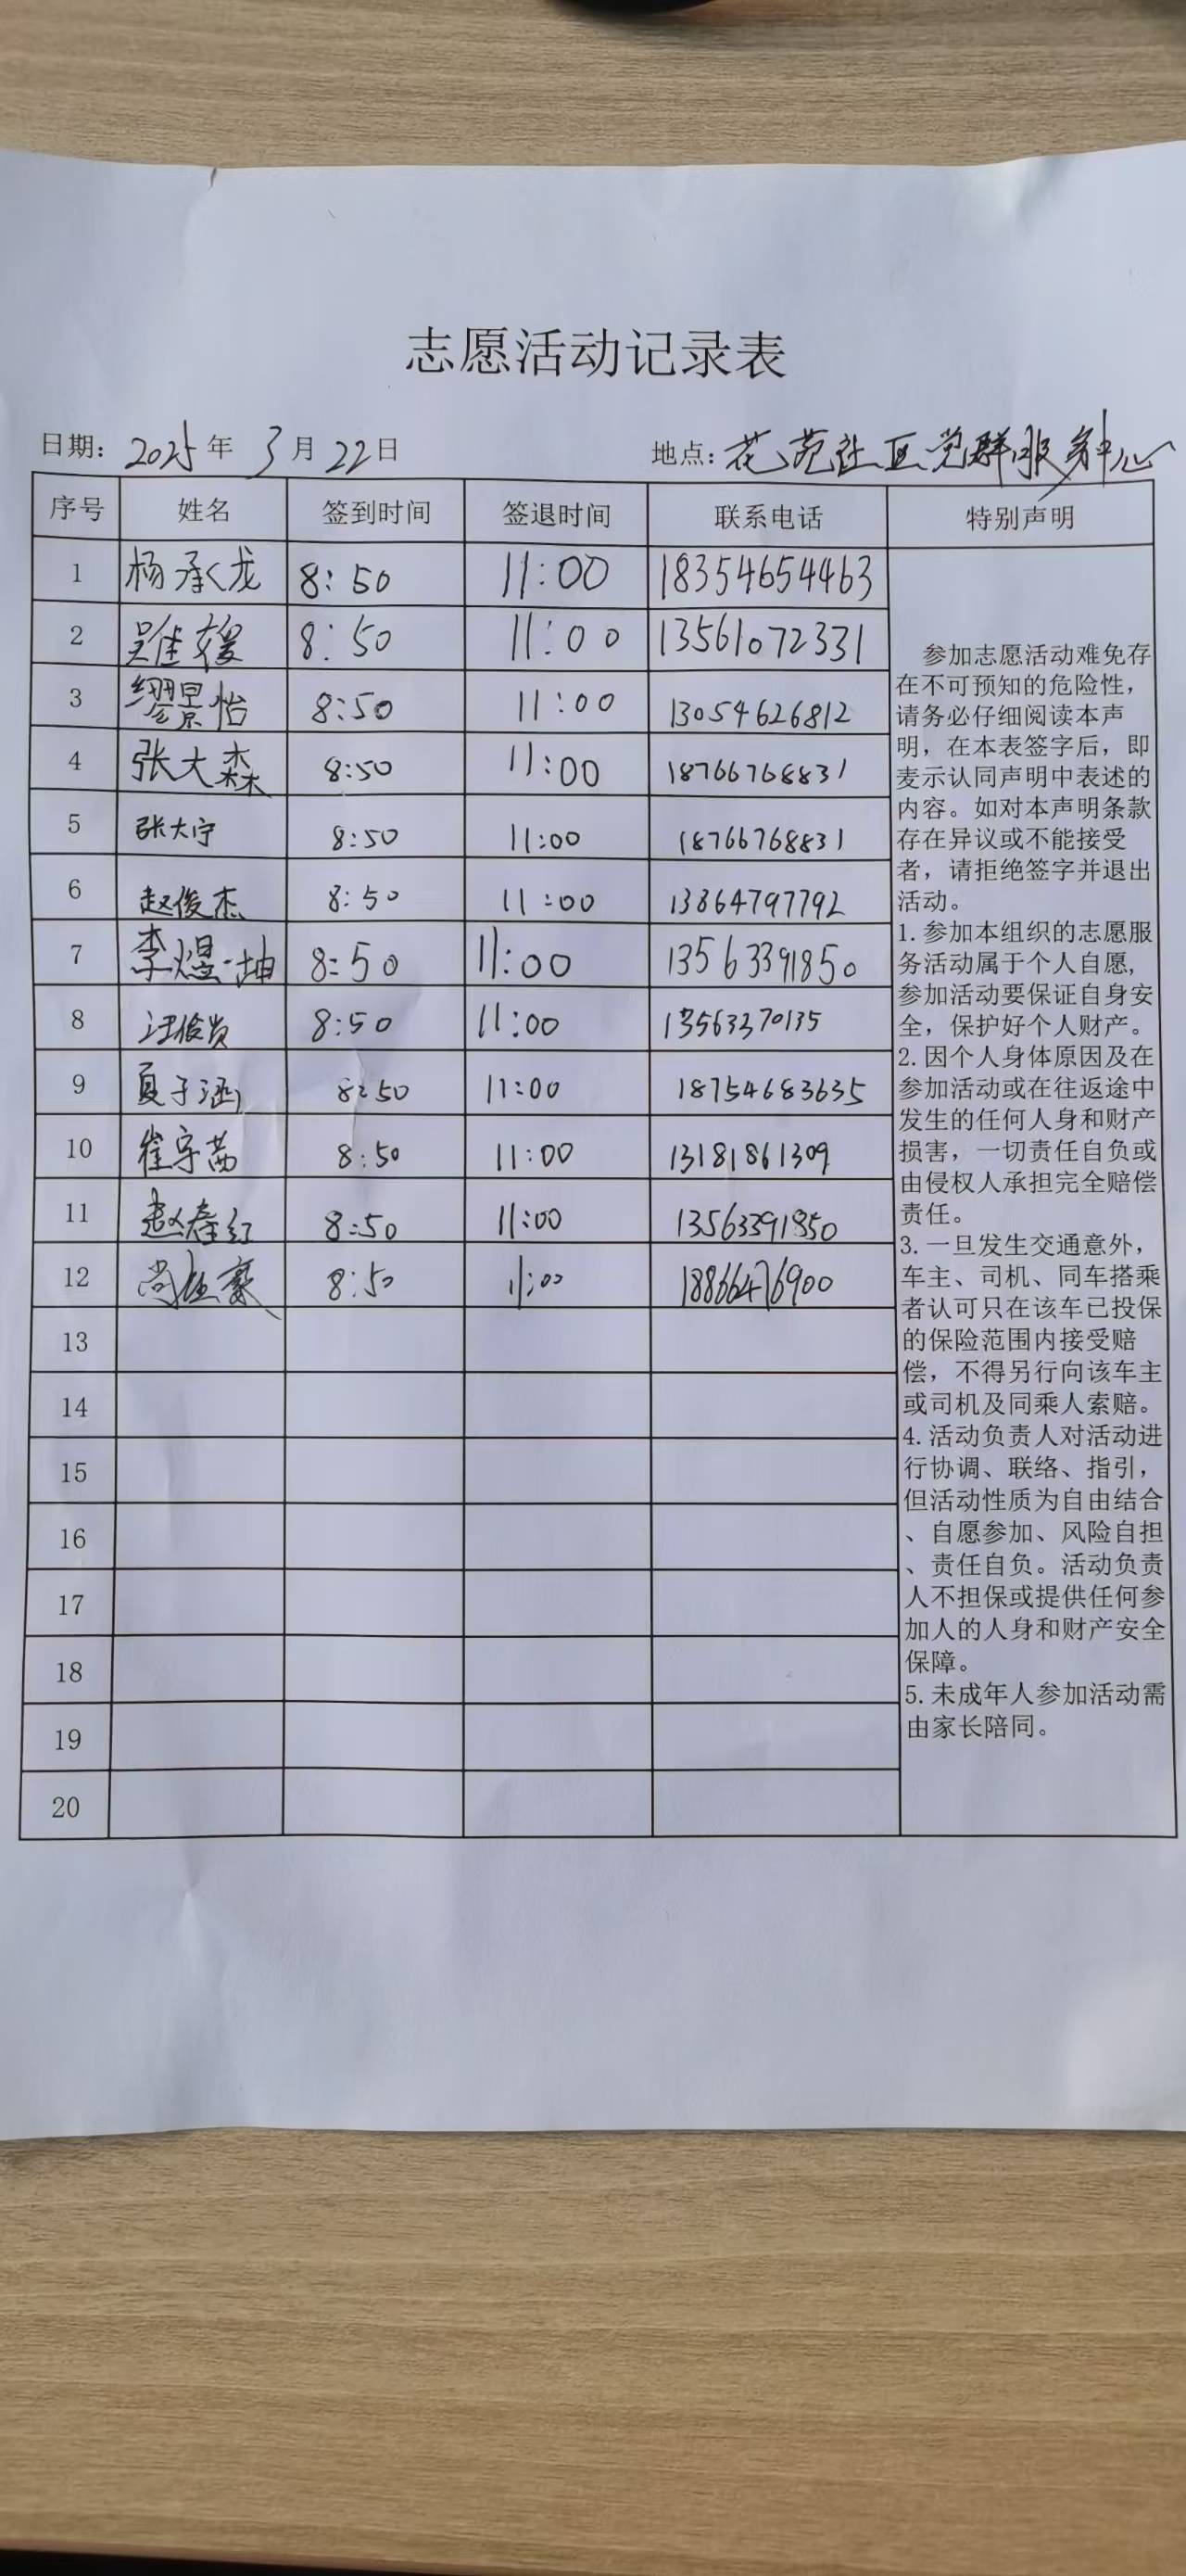 志愿活动记录表
日期：2025年3月22日 地点：花苑社区党群服务中心
序号 姓名 签到时间 签退时间 联系电话 特别声明
1 杨承龙 8:50 11:00 18354654463
2 8:50 11:00 13561072331
3 缪景怡 8:50 11:00 13054626812
4 张大森 8:50 11:00 18766768831
5 张大宁 8:50 11:00 18766768831
6 赵俊杰 8:50 11:00 13864797792
7 李煜坤 8:50 11:00 13563391850
8 8:50 11:00 13563370135
9 夏子涵 8:50 11:00 18754683635
10 崔宇茜 8:50 11:00 13181861309
11 赵春红 8:50 11:00 13563391850
12 8:50 11:00 18866476900
13
14
15
16
17
18
19
20
参加志愿活动难免存
在不可预知的危险性，
请务必仔细阅读本声
明，在本表签字后，即
麦示认同声明中表述的
内容。如对本声明条款
存在异议或不能接受
者，请拒绝签字并退出
活动。
1.参加本组织的志愿服
务活动属于个人自愿，
参加活动要保证自身安
全，保护好个人财产。
2.因个人身体原因及在
参加活动或在往返途中
发生的任何人身和财产
损害，一切责任自负或
由侵权人承担完全赔偿
责任。
3.一旦发生交通意外，
车主、司机、同车搭乘
者认可只在该车已投保
的保险范围内接受赔
偿，不得另行向该车主
或司机及同乘人索赔。
4.活动负责人对活动进
行协调、联络、指引，
但活动性质为自由结合
、自愿参加、风险自担
、责任自负。活动负责
人不担保或提供任何参
加人的人身和财产安全
保障。
5.未成年人参加活动需
由家长陪同。